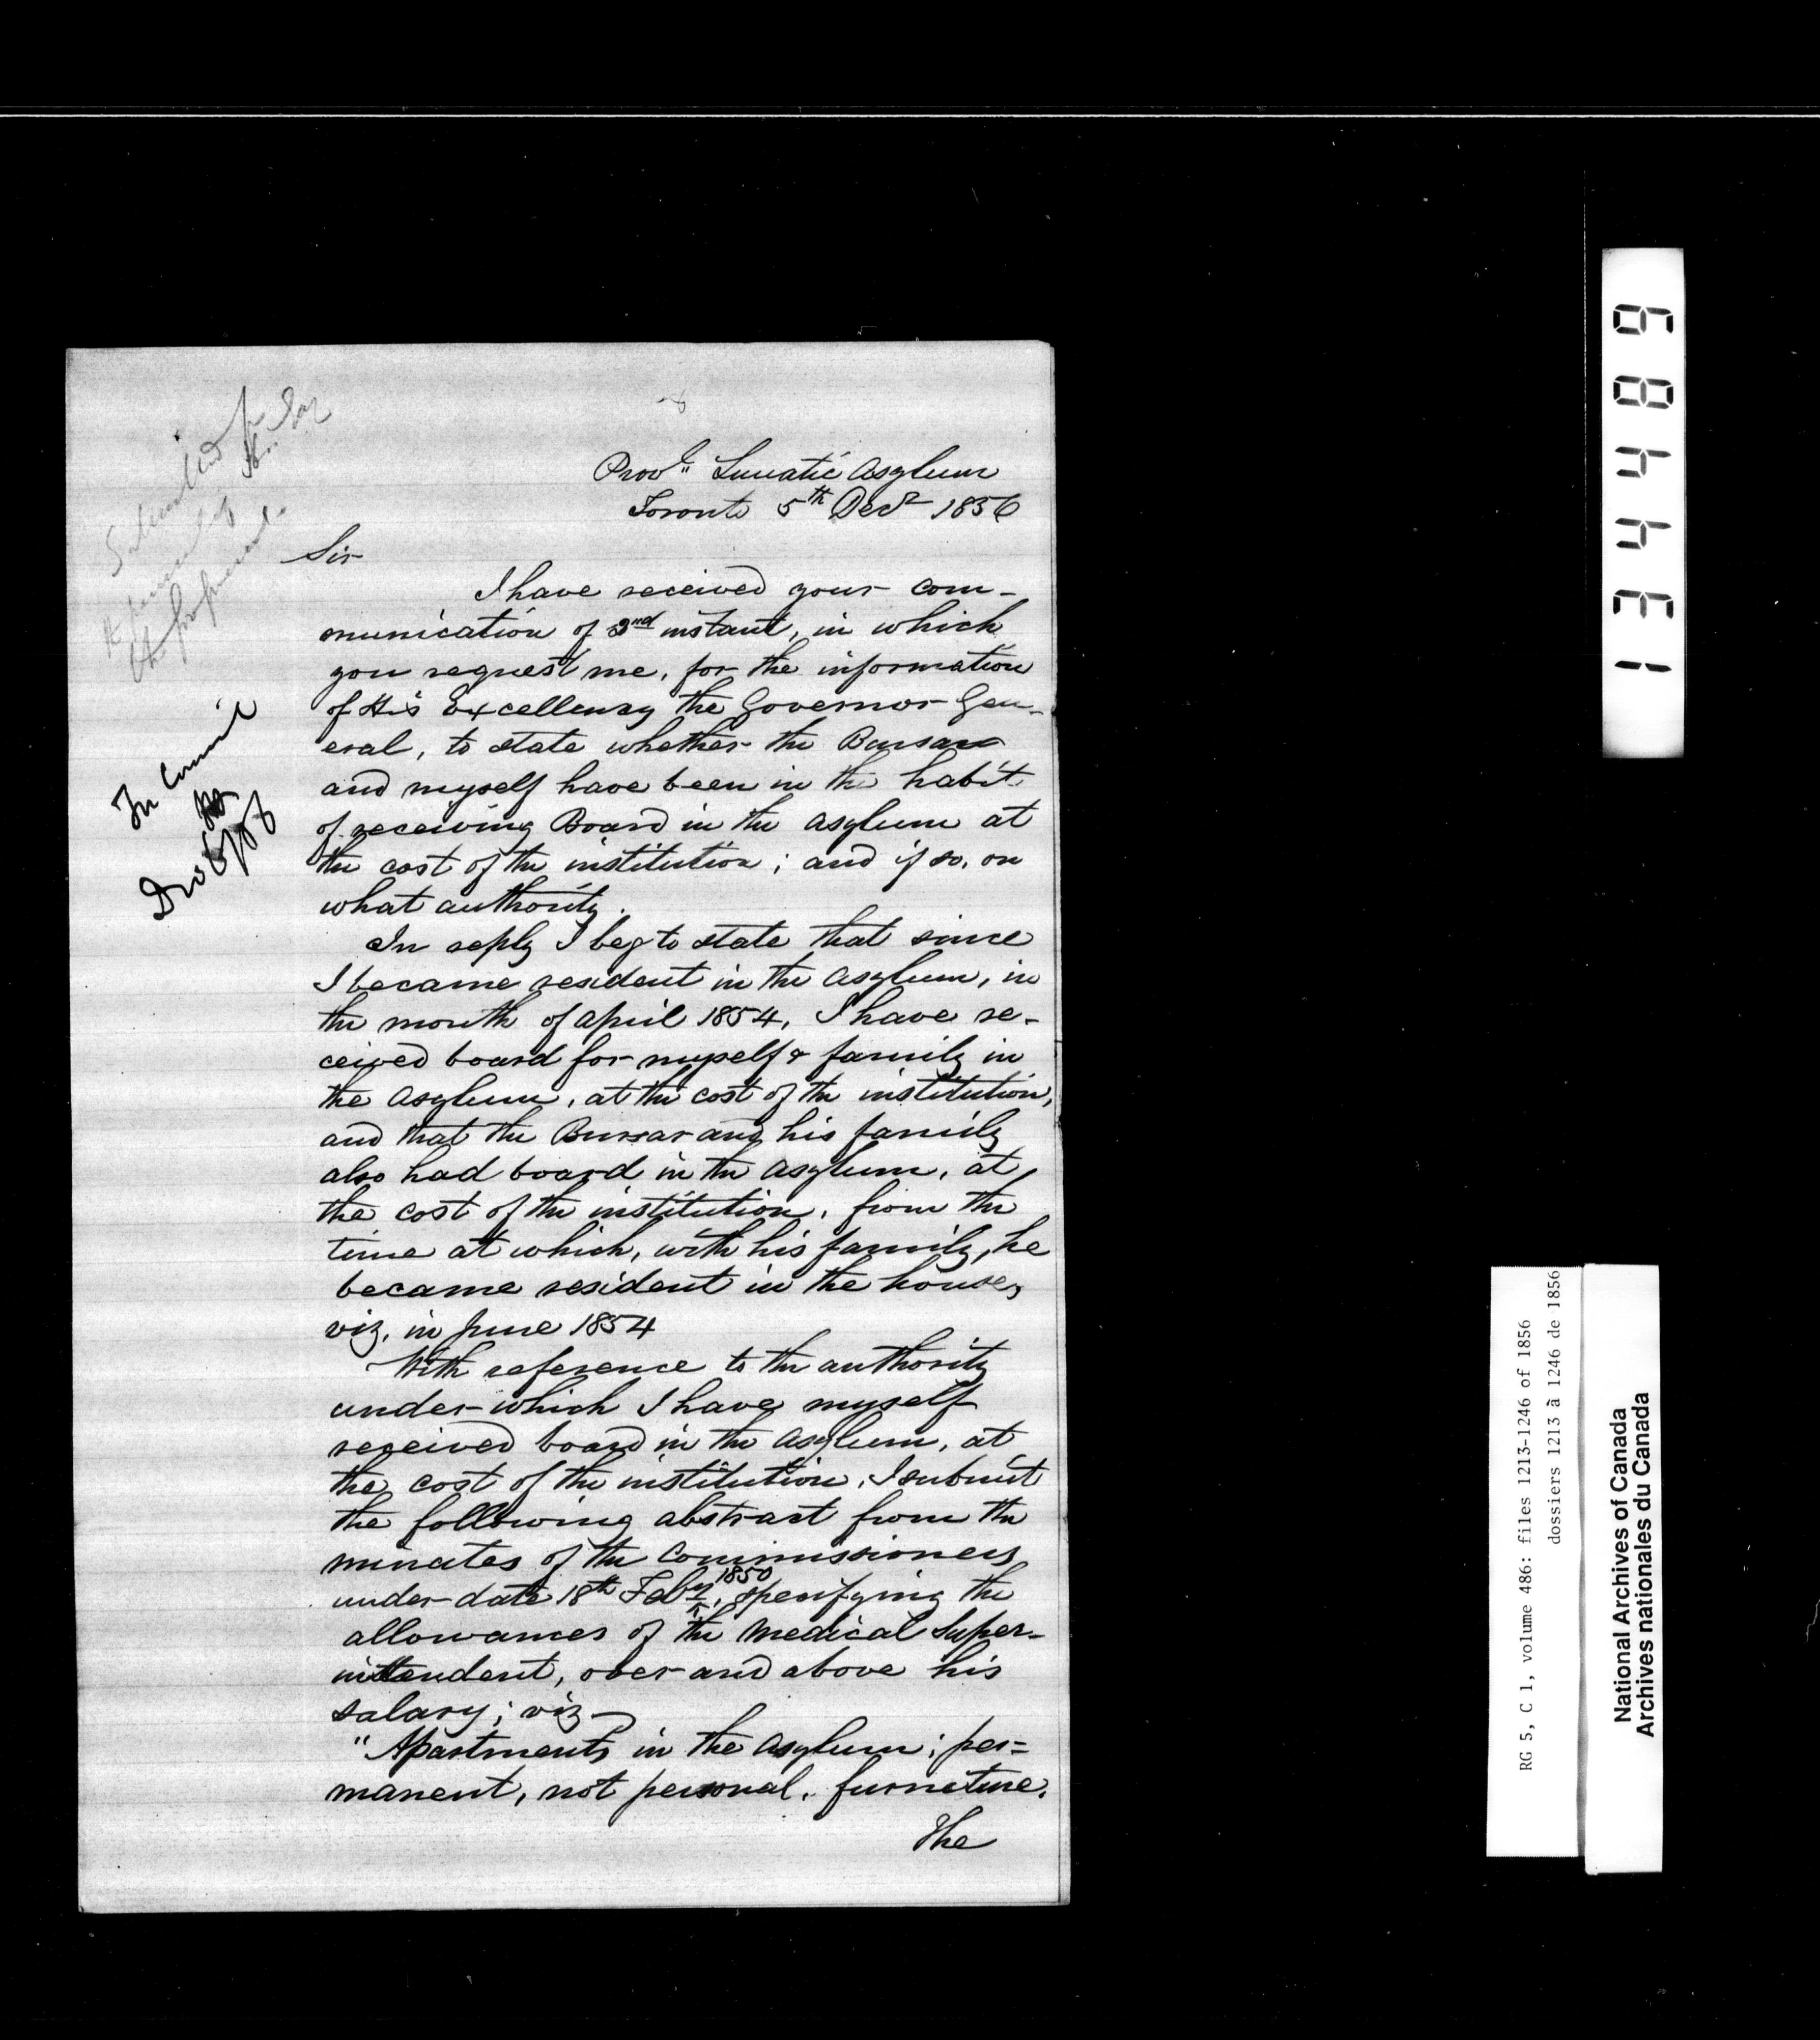 Prov^l" Lunatic Asylum
Toronto 5th Decr 1856
Sir
I have received your com-
munication of 3nd instant, in which
you request me, for the information
of His Excellency the Governor Gen-
eral, to state whether the Bursar
and myself have been in the habit
of receiving Board in the Asylum at
the cost of the institution; and if so, on
what authority.
In reply I beg to state that since
I became resident in the Asylum, in
the month of April 1854, I have re-
ceived board for myself & family in
the Asylum, at the cost of the institution,
and that the Bursar and his family
also had board in the Asylum, at
the cost of the institution, from the
time at which, with his family, he
became resident in the house,
viz, in June 1854
With reference to the authority
under which I have myself
received board in the Asylum, at
the cost of the institution, I submit
the following abstract from the
minutes of the Commissioners
under date 18th Feby 1850, specifying the
allowances of the Medical Super-
intendent, over and above his
salary; viz
"Apartments in the Asylum; per=
manent, not personal, furniture.
The
In Council
134489
RG 5, C 1, volume 486: files 1213-1246 of 1856
dossiers 1213 à 1246 de 1856
National Archives of Canada
Archives nationales du Canada